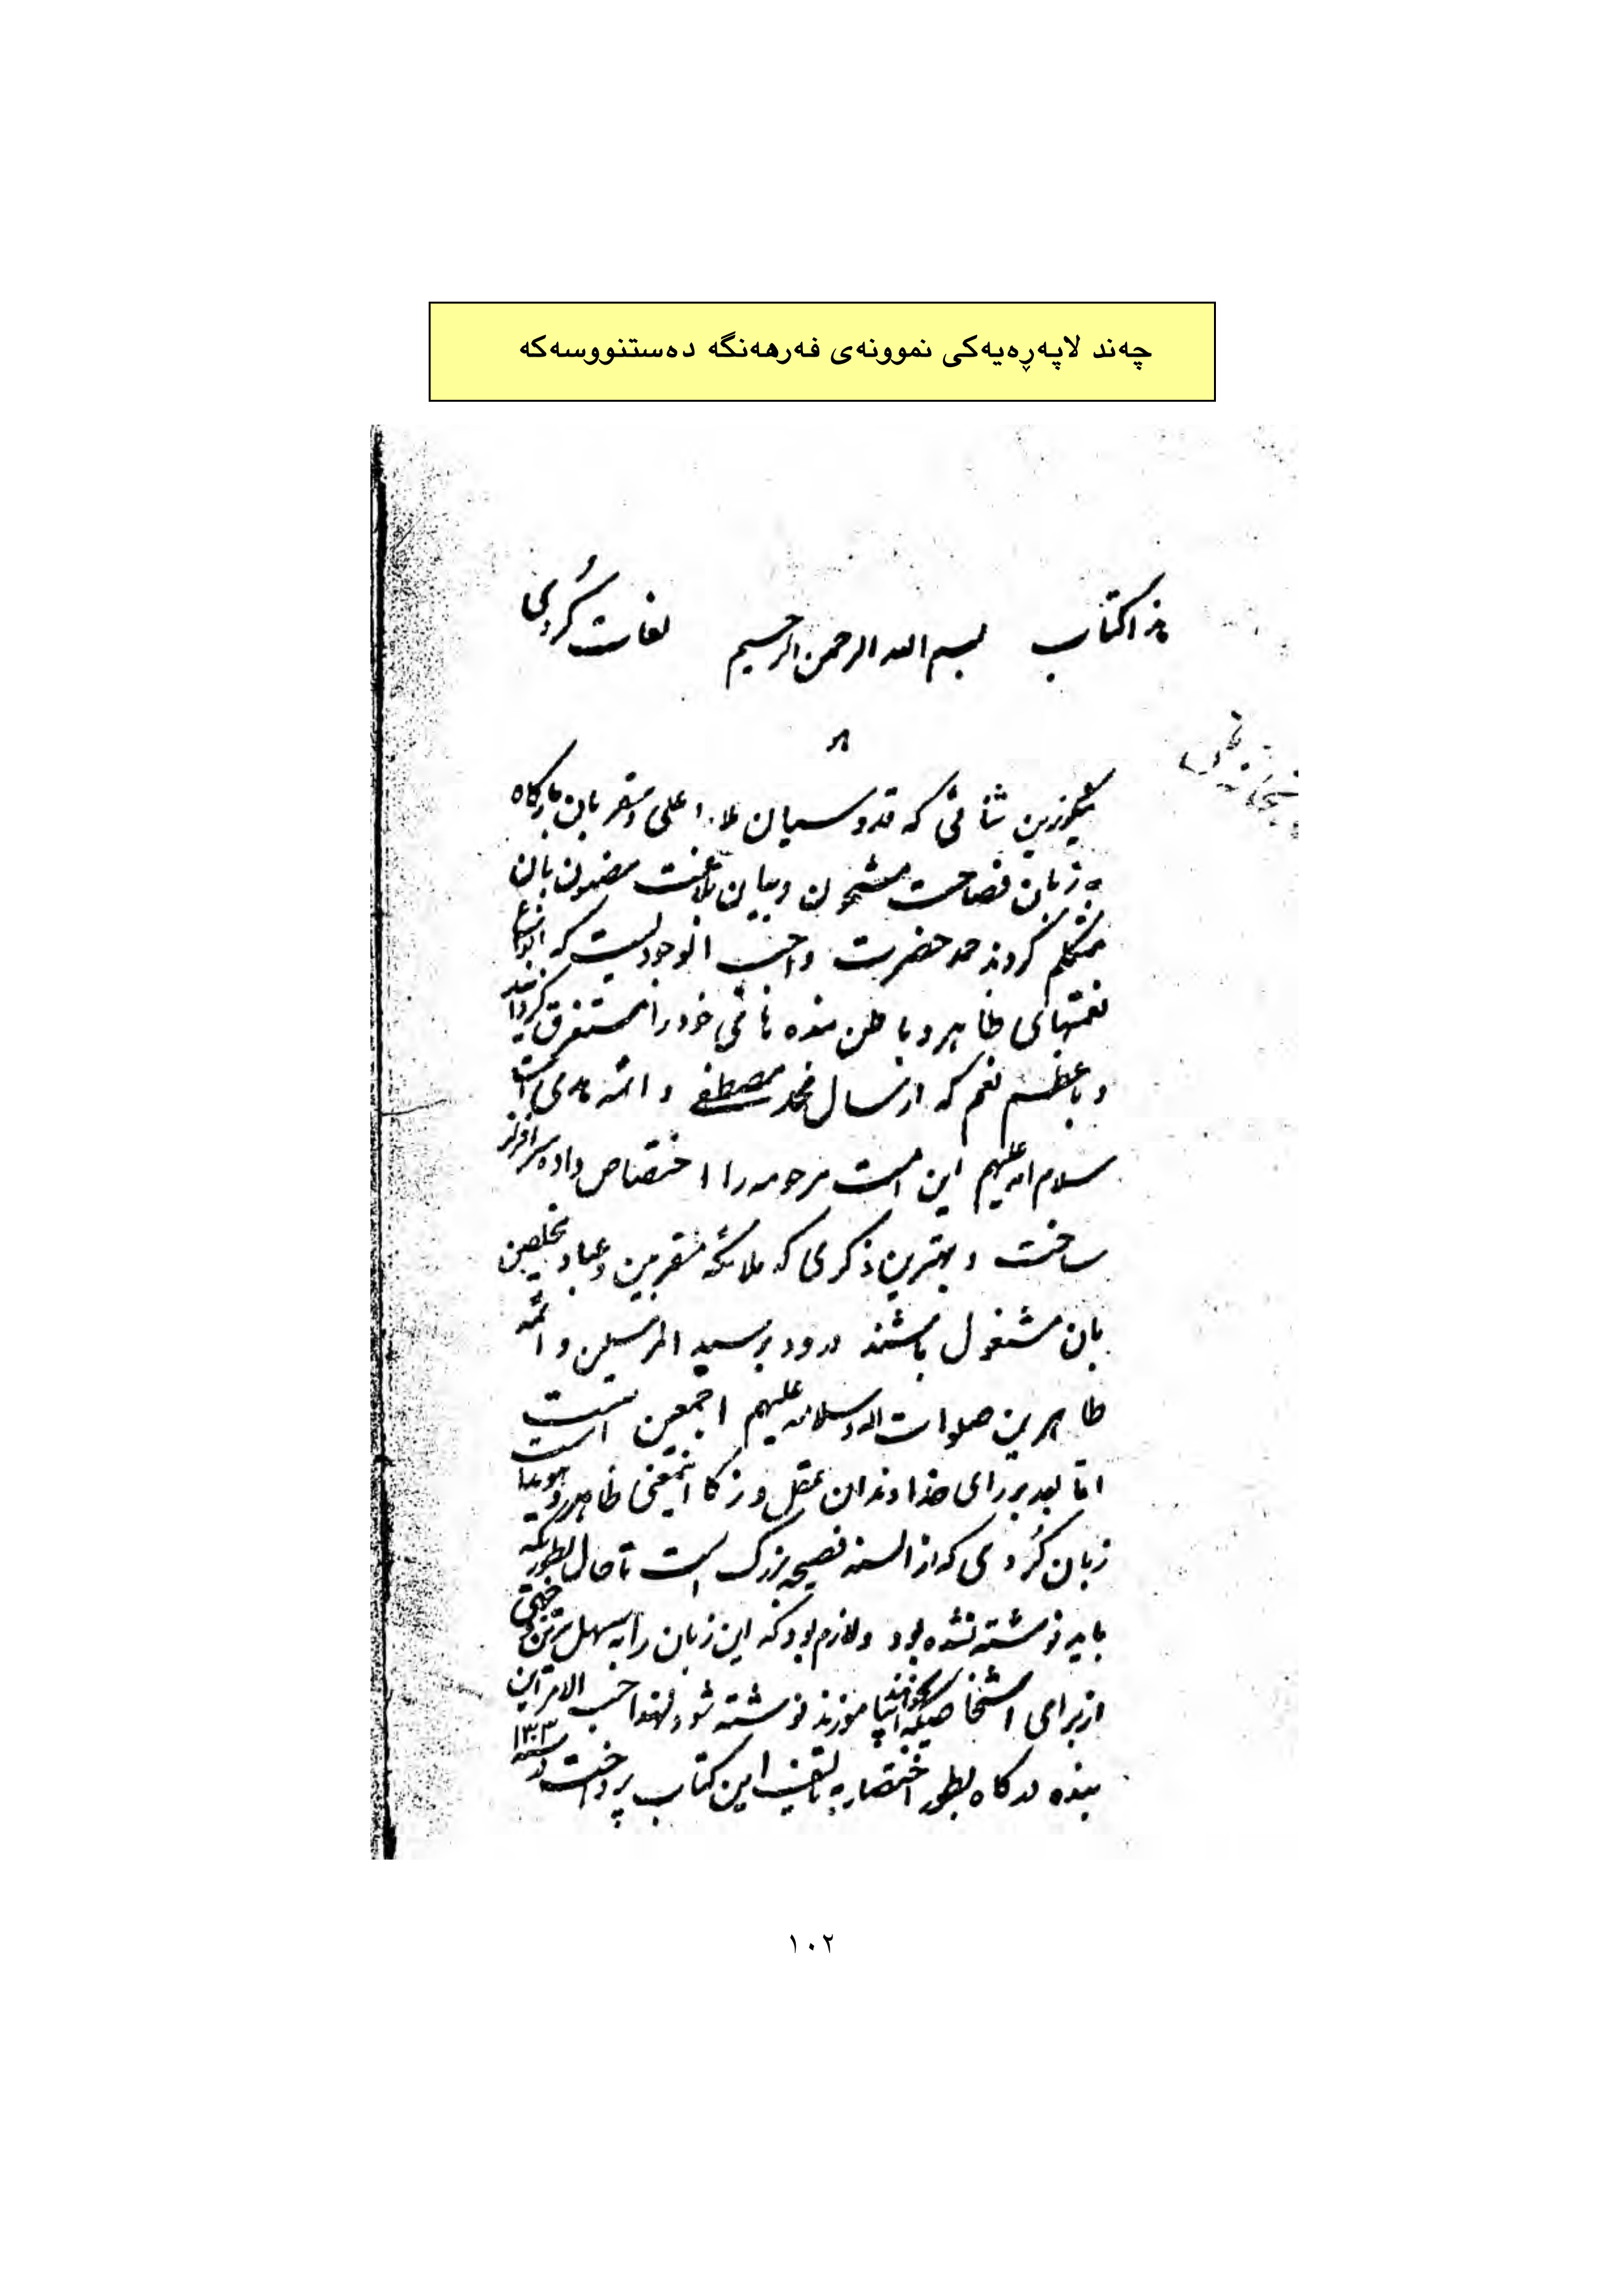 چەند لاپەڕەیەکی نموونەی فەرهەنگە دەستنووسەکە
هذا کتاب بسم الله الرحمن الرحیم لغات کُردی
نیکوترین ثنائی که قدوسیان ملاء اعلی و مقربان بارگاه
به زبان فصاحت مشحون و بیان بلاغت مضمون بآن
متکلم گردند حمد حضرت واجب الوجودیست که بانواع
نعمتهای ظاهر و باطن بنده فانی خود را مستغرق گردانید
و باعظم نعم که ارسال محمد مصطفی و ائمه هدی است
سلام الله علیهم این امت مرحومه را اختصاص داده سرافراز
ساخت و بهترین ذکری که ملائکه مقربین و عباد مخلصین
بآن مشغول باشند درود بر سید المرسلین و ائمه
طاهرین صلوات الله و سلامه علیهم اجمعین است
اما بعد بر رای خداوندان عقل و زکا اینمعنی ظاهر و هویدا است
زبان کُردی که از السنه فصیحه بزرگ است تا حال بطوریکه
باید نوشته نشده بود و لازم بود که این زبان را به سهل ترین
از برای اشخاصیکه بخواهند بیاموزند نوشته شود لهذا حسب الامر این
بنده درگاه بطور اختصار به تالیف این کتاب پرداخت در سنه ۱۳۰۳
١٠٢